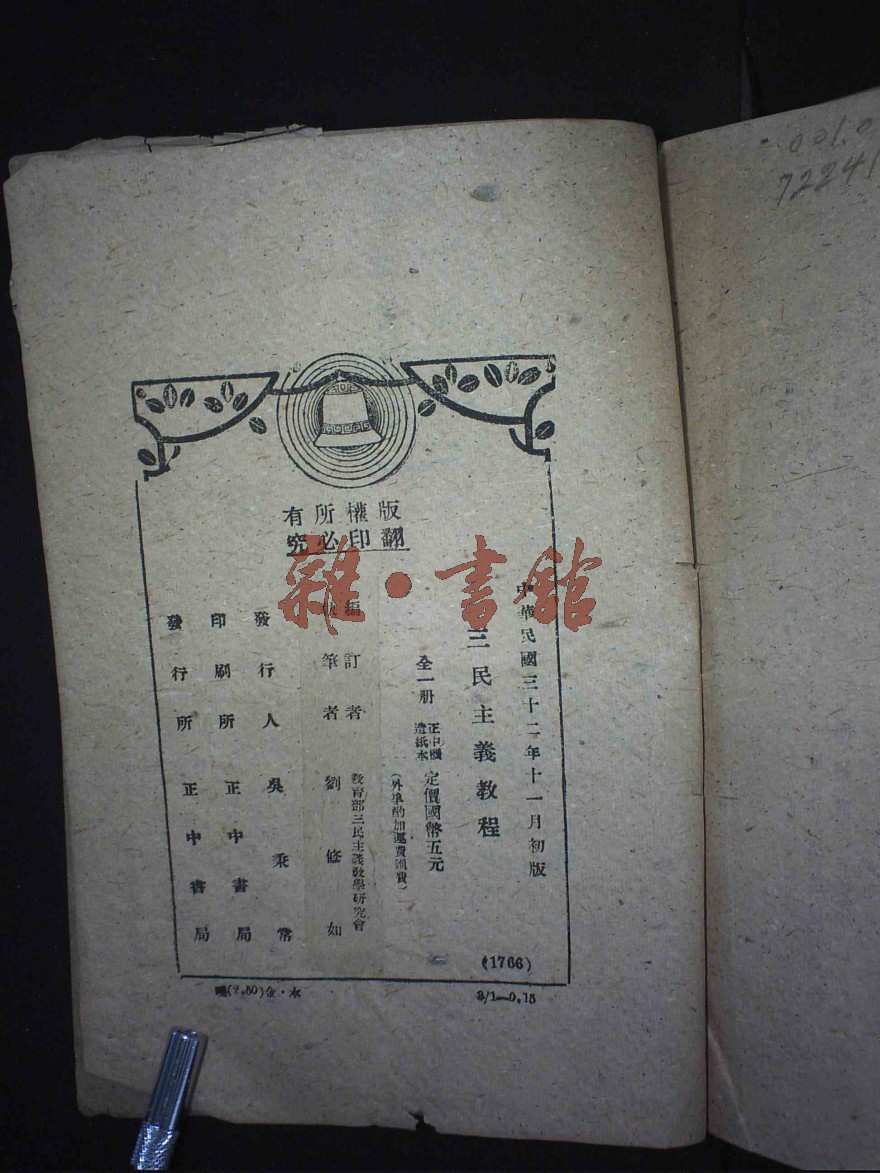 版權所有
翻印必究
中華民國三十二年十一月初版
三民主義教程
全一册
正中機造紙本
定價國幣五元
(外埠酌加運費匯費)
編訂者 教育部三民主義教學研究會
執筆者 劉修如
發行人 吳秉常
印刷所 正中書局
發行所 正中書局
(1766)
(2.50)金·水
3/1—0.15
雜·書館
001.0
72241